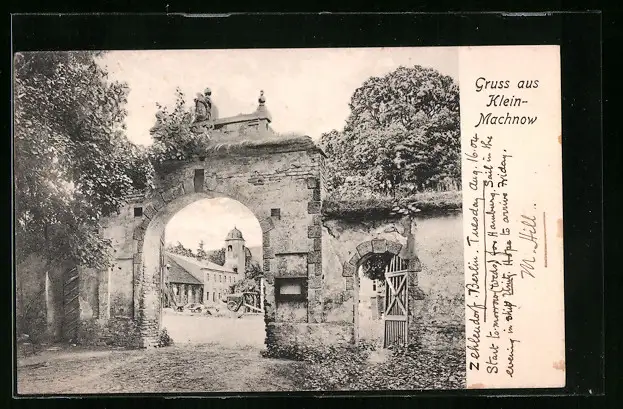 Gruss aus
Klein-
Machnow
Zehlendorf-Berlin Tuesday Aug. 16.04
Start to-morrow (Weds) for Hamburg. Sail in the
evening in ship Hope to arrive Friday.
M. Hill.